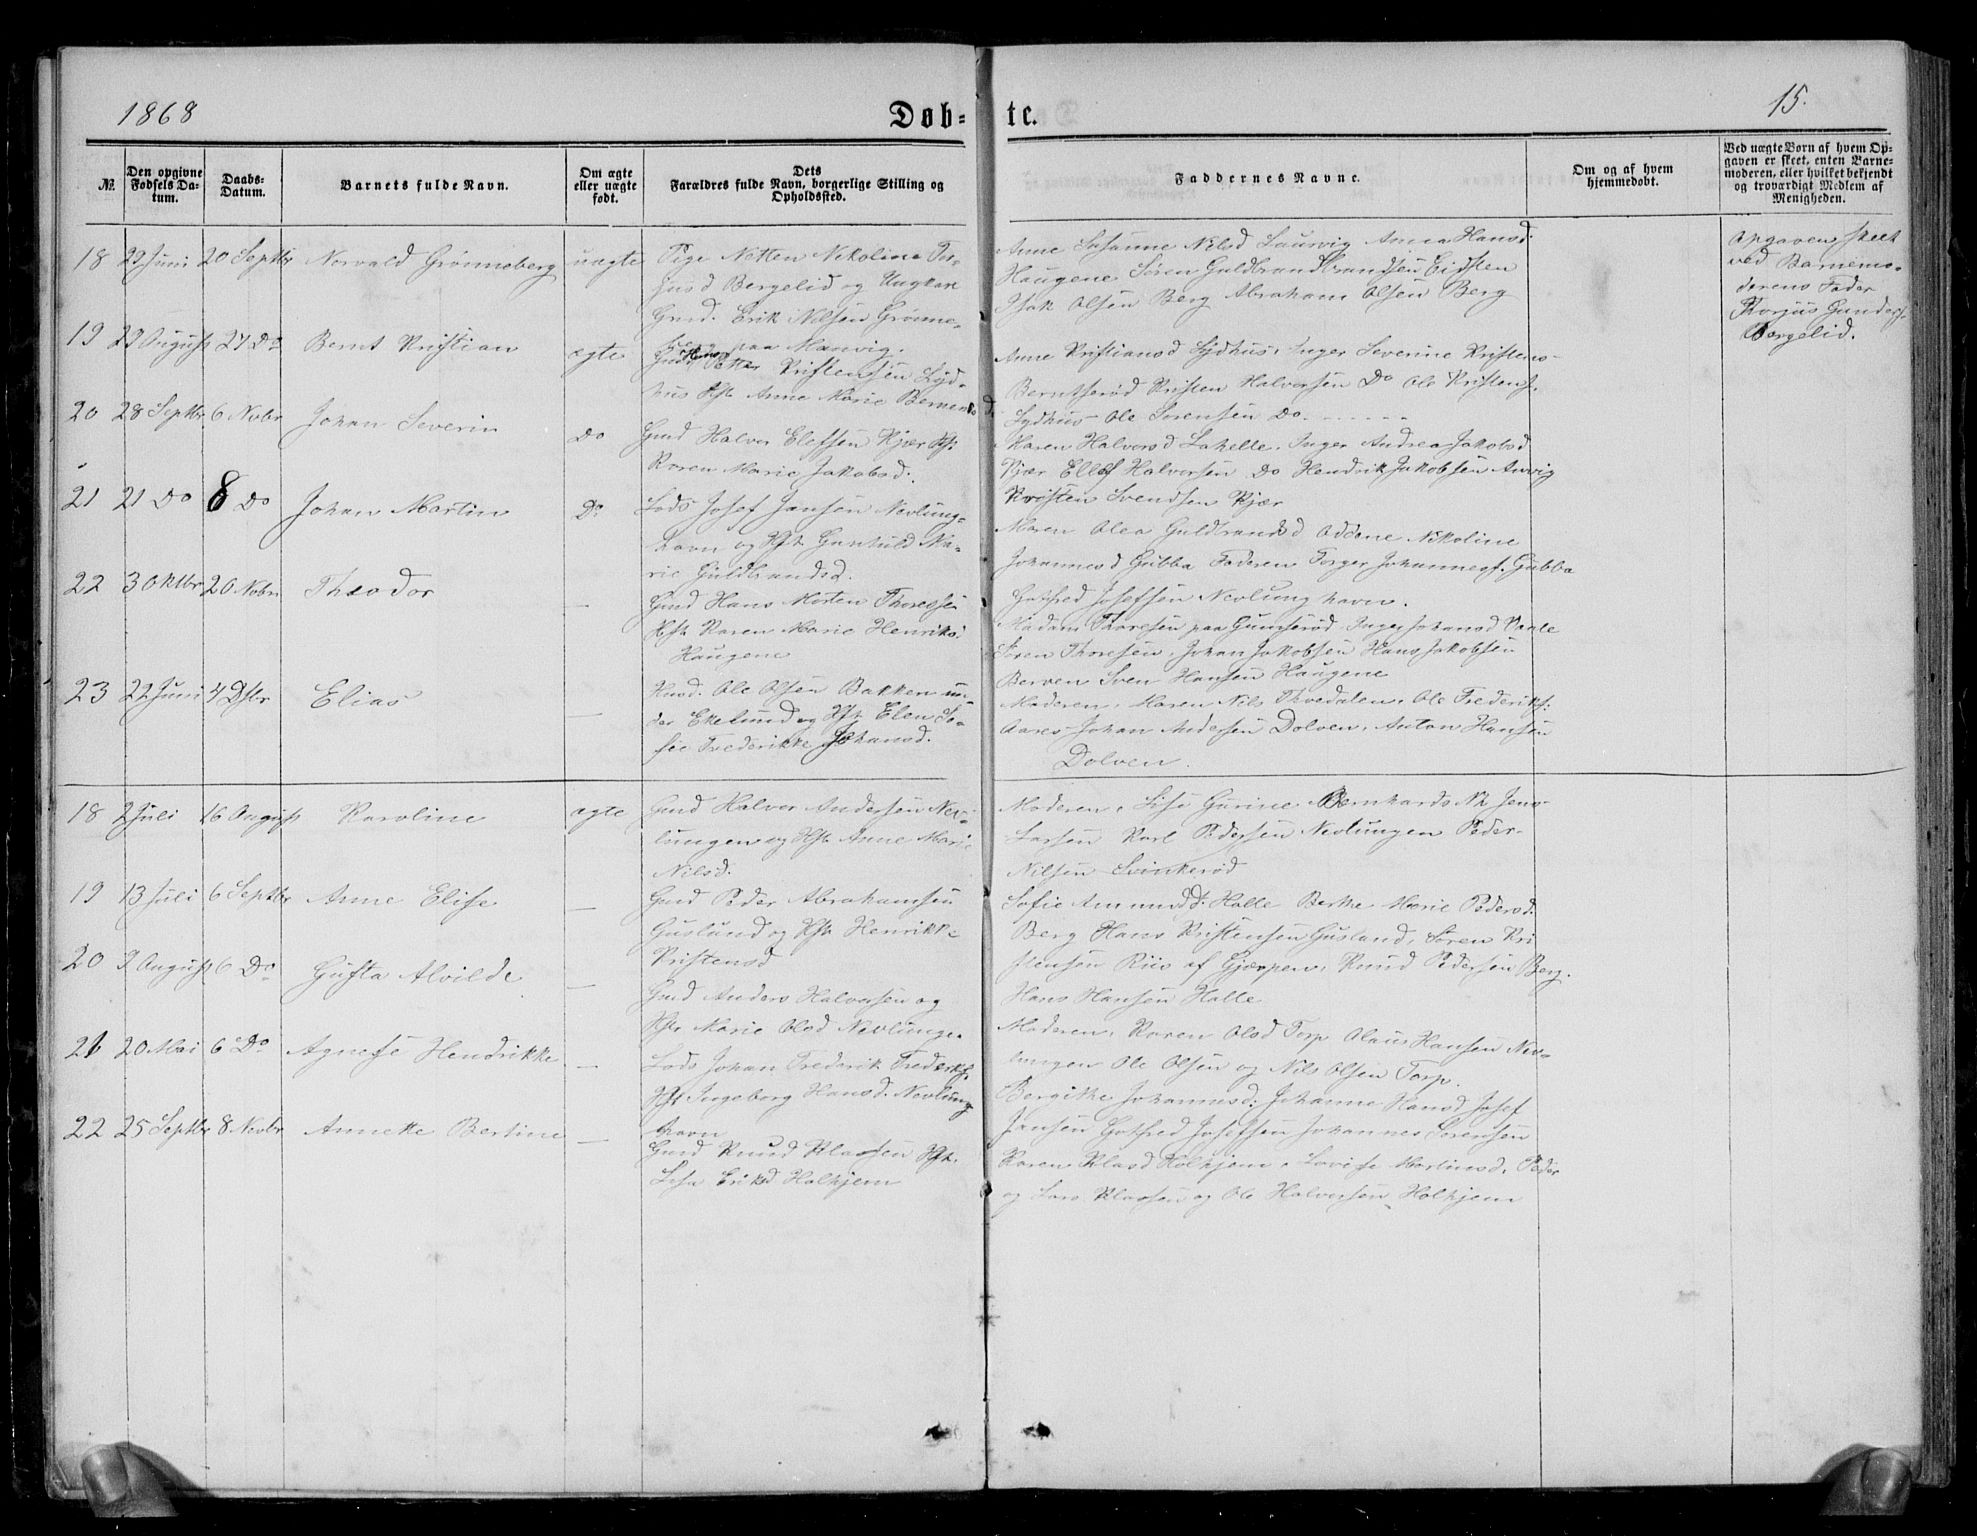 1868
Døb-
te.
15.
№
Den opgivne Fødsels Da-tum.
Daabs-Datum.
Barnets fulde Navn.
Om ægte eller uægte født.
Dets Forældres fulde Navn, borgerlige Stilling og Opholdssted.
Faddernes Navne.
Om og af hvem hjemmedøbt.
Ved uægte Børn af hvem Op-
gaven er skeet, enten Barne-
moderen, eller hvilket bekjendt
og troværdigt Medlem af
Menigheden.
18 22 Juni 20 Septbr Norvald Grønneberg uægte
Pige Netten Nikoline Tor-
jusd Bergelid og Ungkar
Gmd. Erik Nilsen Grønne-
berg paa Manvig.
Anne Susanne Nilsd Laurvig Anna Hansd:
Haugene Søren Guldbrandsen Eidsten
Isak Olsen Berg Abraham Olsen Berg
Opgaven skeet
ved Barnemo-
derens Fader
Torjus Gunders.
Bergelid.
19 22 August 27 Do Bernt Kristian ægte
Petter Kristensen Syd-
hus Hst Anne Marie Berntsd
Anne Kristiansd Sydhus, Inger Severine Kristens-
Berntserød Kristen Halvorsen Do Ole Kristens.
Sydhus - Ole Sørensen Do
20 28 Septbr 6 Novbr Johan Severin Do
Gmd Halvor Elefsen Kjær Hst.
Karen Marie Jakobsd.
Maren Halvorsd Lakelle. Inger Andrea Jakobsd
Kjær Ellef Halvorsen Do Hendrik Jakobsen Anvig
Kristen Svendsen Kjær
21 21 Do 8 Do Johan Martin Do
Lods Josef Jansen Nevlung-
havn og Hst Gunhild Ma-
rie Guldbrandsd.
Maren Olea Guldbrandsd Oddane Nikoline
Johannesd Gubba Faderen Torger Johannesf. Gubba
Gotfred Josefsen Nevlunghavn.
22 3 Oktbr 20 Novbr Theodor —
Gmd Hans Morten Thoresen
Hst Karen Marie Henriksd
Haugene
Madam Thoresen paa Gumserød Inger Johansd Vaale
Søren Thoresen, Johan Jakobsen Hans Jakobsen
Berven Sven Hansen Haugene
23 22 Juni 4 Dsbr Elias —
Hmd. Ole Olsen Bakken un-
der Eikelund og Hst Elen So-
fie Frederikke Johansd.
Moderen, Maren Nils Thvedalen, Ole Frederiksf:
Aarøs Johan Andersen Dolven, Anton Hansen
Dolven.
18 2 Juli 16 August Karoline ægte
Gmd Halvor Andersen Nev-
lungen og Hst Anne Marie
Nilsd.
Moderen, Lise Gurine Bernhards Nk Jens
Larsen Karl Pedersen Nevlungen Peder
Nilsen Svinkerød
19 13 Juli 6 Septbr Anne Elise —
Gmd Peder Abrahamsen
Gusland og Hst Henrikke
Kristensd
Sofie Amundsd. Halle Berthe Marie Pedersd.
Berg Hans Kristensen Gusland, Søren Kri
stensen Riis af Gjerpen, Knud Pedersen Berg.
Hans Hansen Halle
20 9 August 6 Do Gusta Alvilde —
Gmd Anders Halvorsen og
Hst Marie Olsd Nevlunge.
Moderen, Karen Olsd Torp Olaus Hansen Nev-
lungen Ole Olsen og Nils Olsen Torp.
21 20 Mai 6 Do Agnese Hendrikke —
Lods Johan Frederik Frederiks.
Hst Ingeborg Hansd. Nevlung
havn
Bergithe Johannesd: Johanne Hansd Josef
Jansen Gotfred Josefsen Johannes Sørensen
22 25 Septbr 8 Novbr Annette Bertine —
Gmd Knud Klausen Hst.
Lisa Eriksd Holhjem
Karen Klasd Holhjem, Lovise Martinsd, Peder
og Lars Klausen og Ole Halvorsen Holhjem